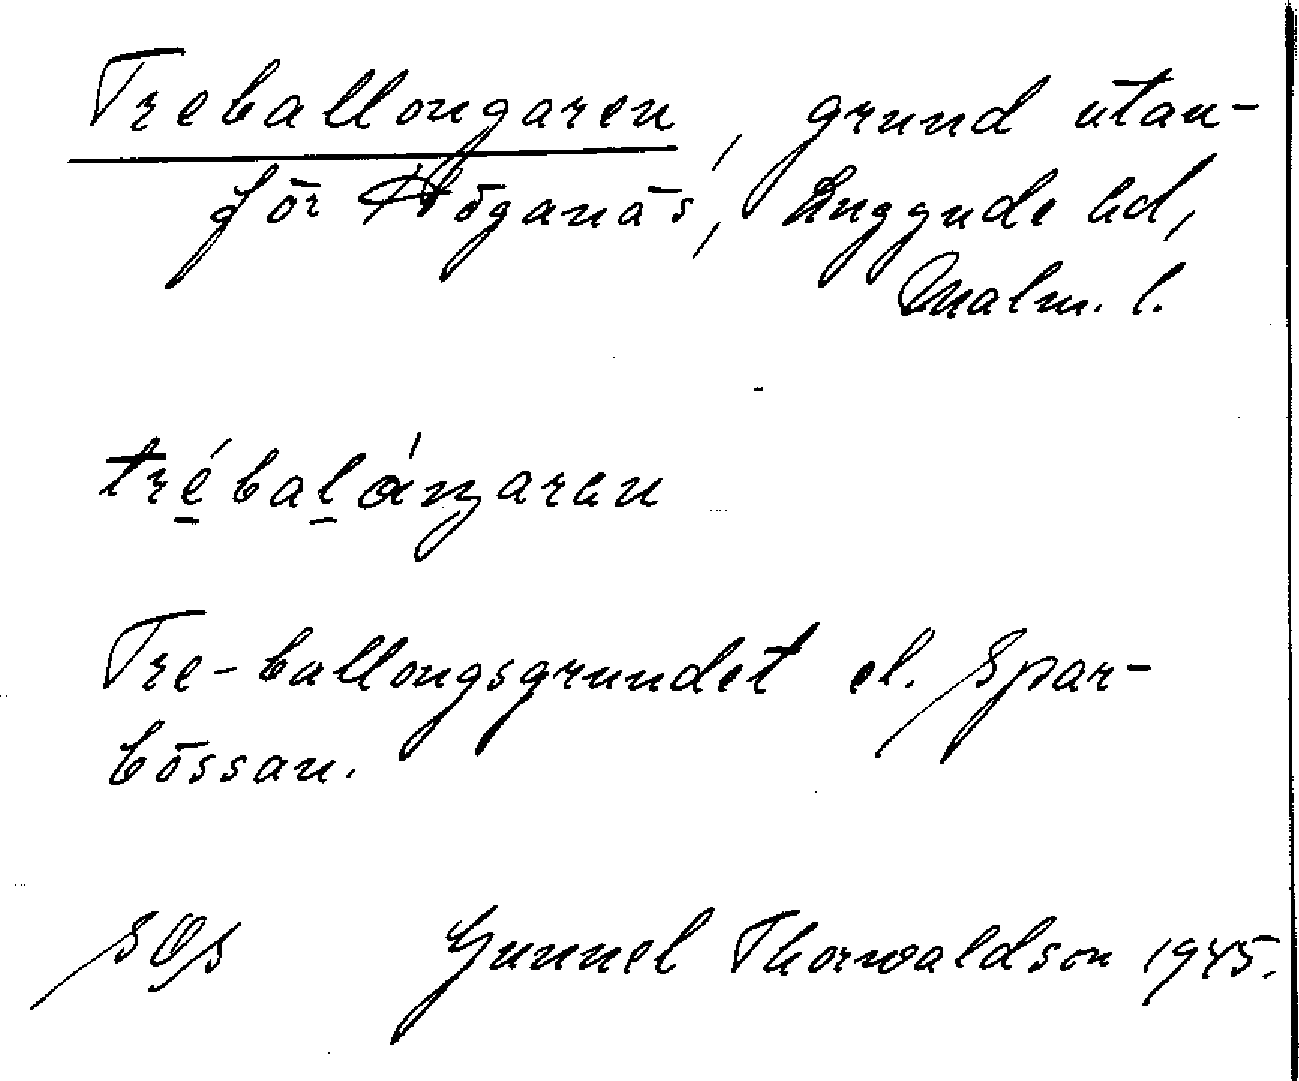 Treballongaren, grund utan-
för Höganäs, Luggude hd,
Malm. l.
trébalånŋaren
Tre-ballongsgrundet el. Spar-
bössan.
SOS Gunnel Thorwaldson 1945.